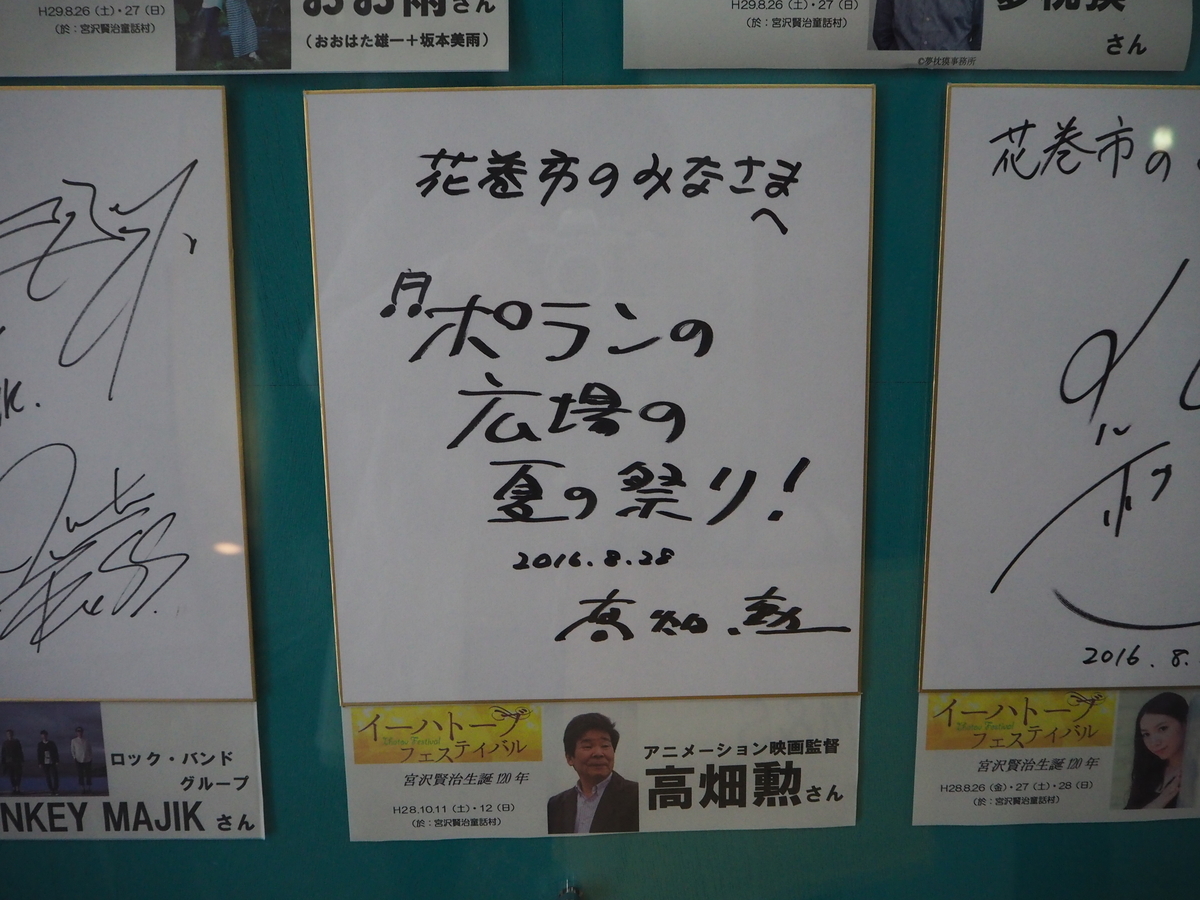 H29.8.26（土）・27（日）
（於：宮沢賢治童話村）
おお雨さん
（おおはた雄一＋坂本美雨）
H29.8.26（土）・27（日）
（於：宮沢賢治童話村）
夢枕獏
さん
©夢枕獏事務所
花巻市のみなさま
へ
♬ポランの
広場の
夏の祭り！
2016.8.28
高畑勲
イーハトーブ
フェスティバル
宮沢賢治生誕120年
H28.10.11（土）・12（日）
（於：宮沢賢治童話村）
アニメーション映画監督
高畑勲さん
ロック・バンド
グループ
NKEY MAJIK さん
花巻市の
2016.8.
イーハトーブ
フェスティバル
宮沢賢治生誕120年
H28.8.26（金）・27（土）・28（日）
（於：宮沢賢治童話村）